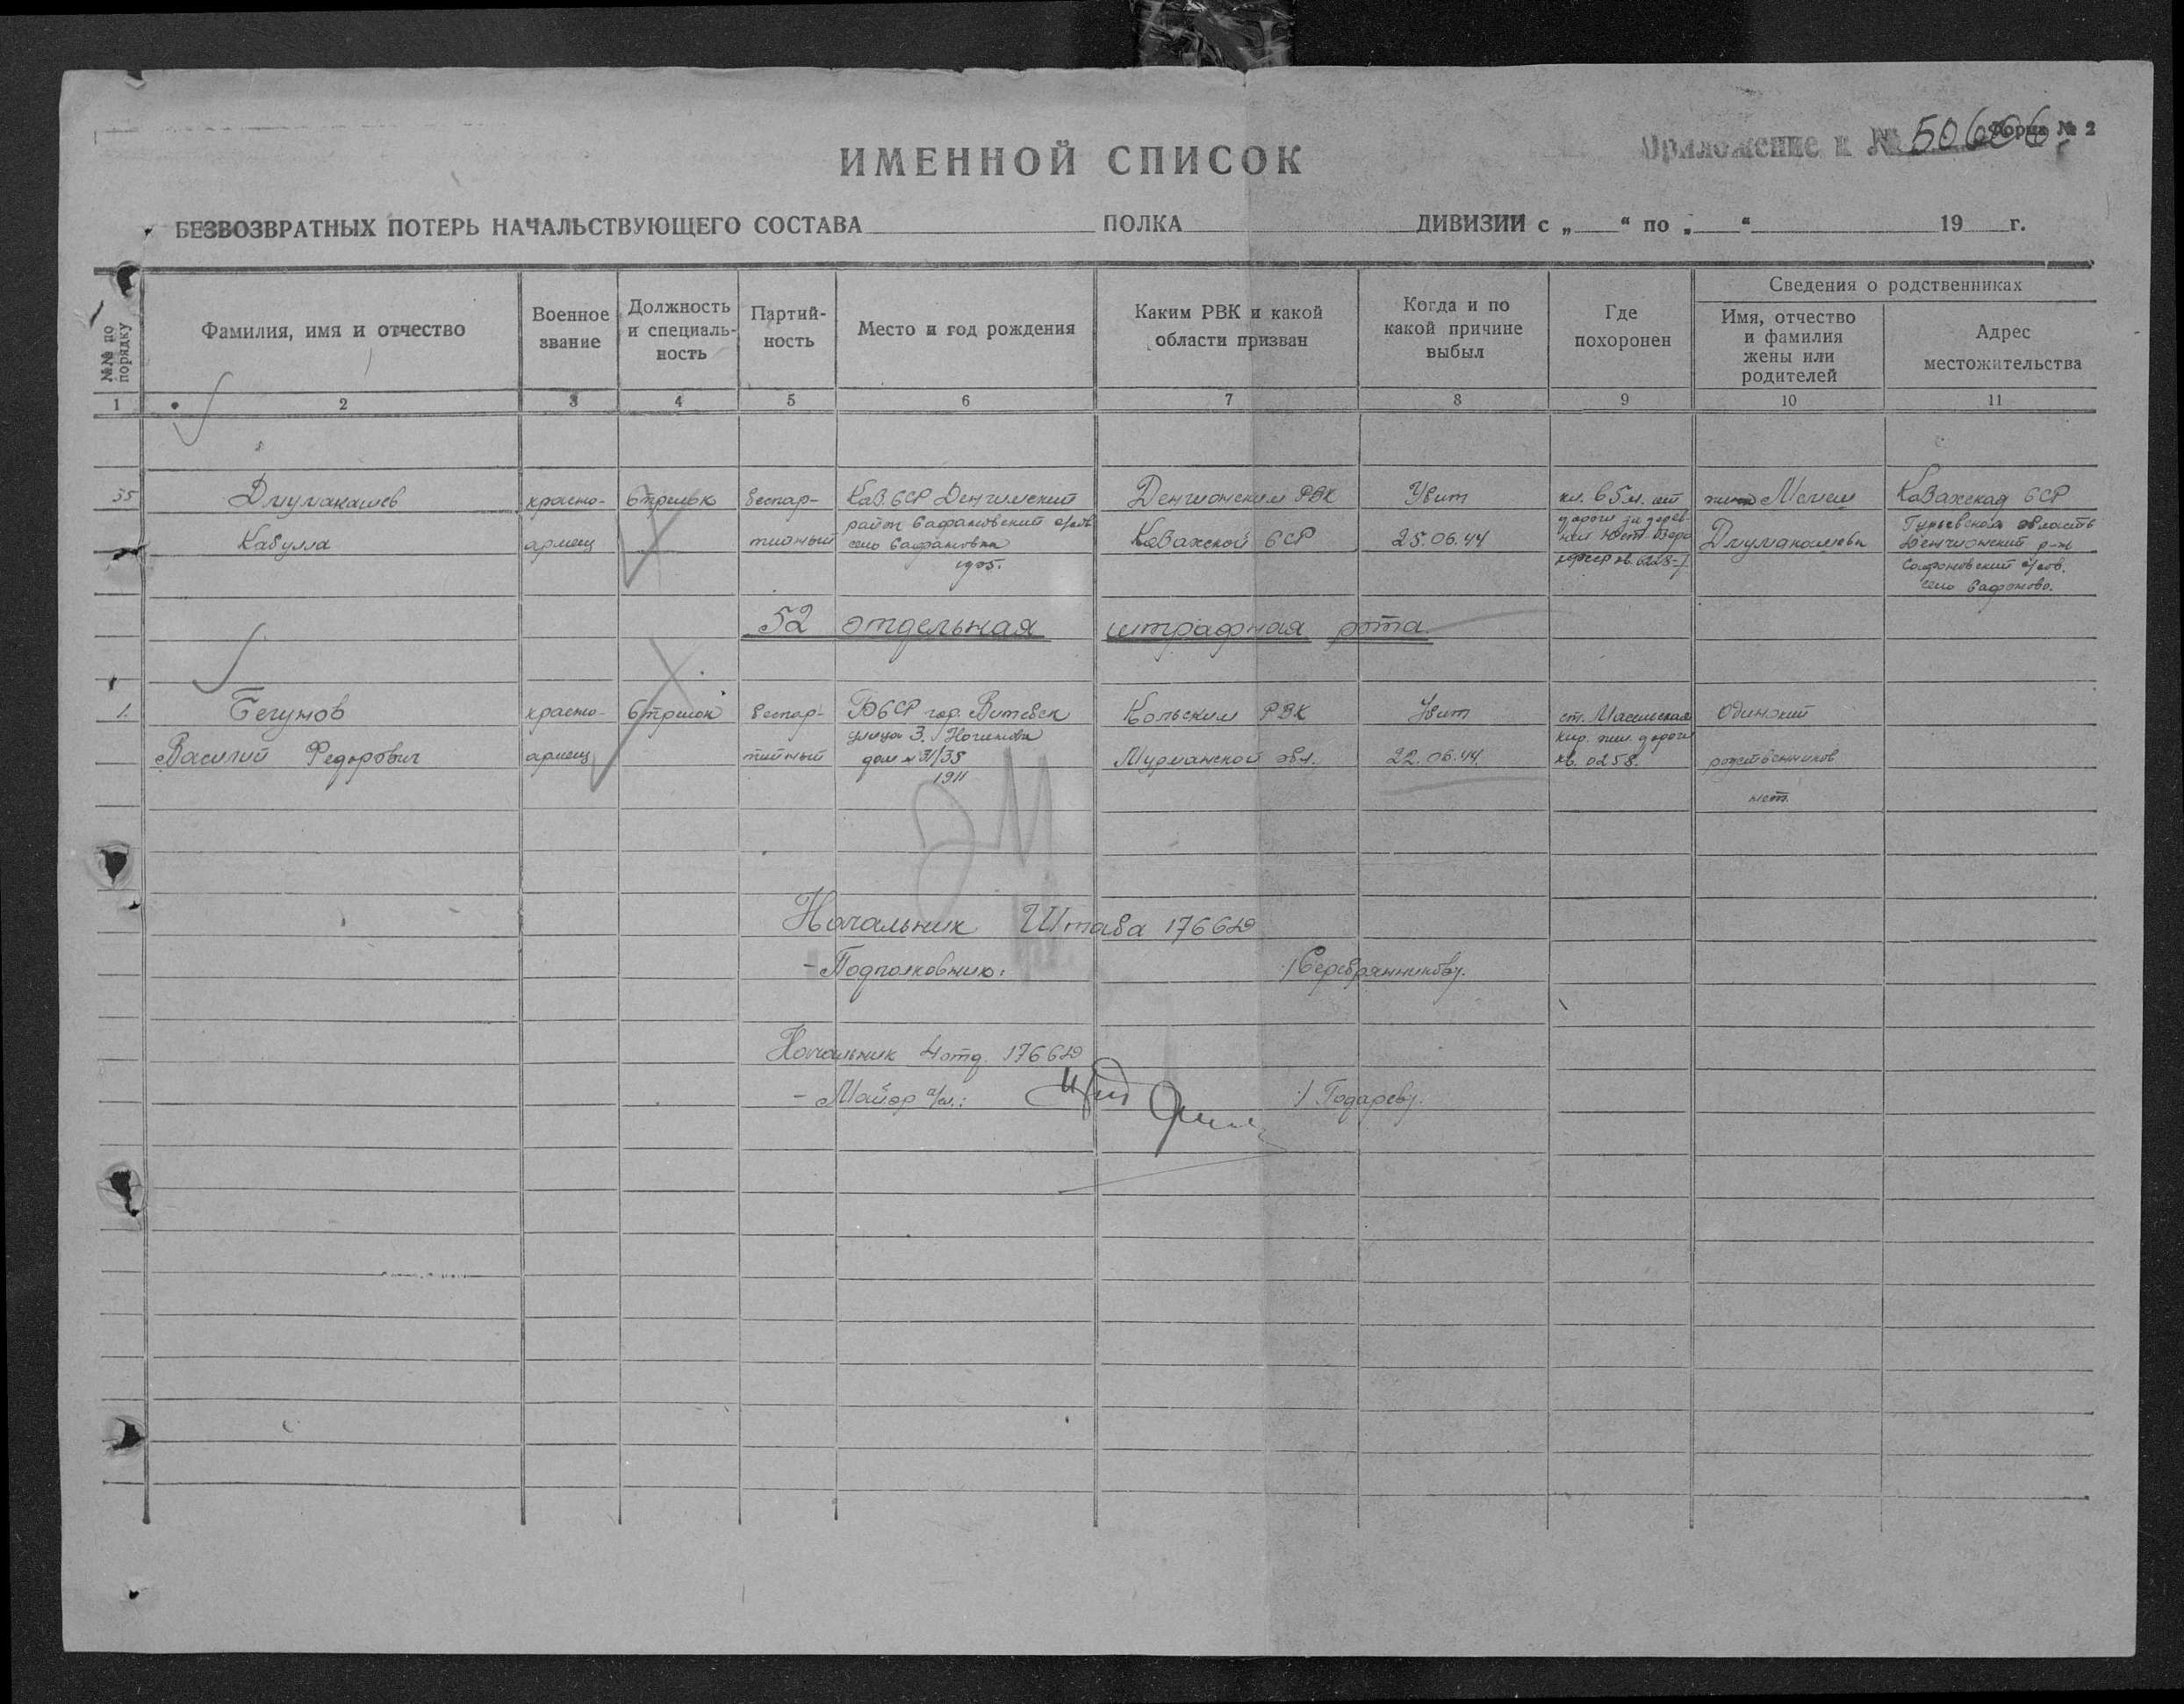 Приложение к № 50606
Форма № 2
ИМЕННОЙ СПИСОК
БЕЗВОЗВРАТНЫХ ПОТЕРЬ НАЧАЛЬСТВУЮЩЕГО СОСТАВА ПОЛКА ДИВИЗИИ с „ “ по „ “ 19 г.
№№ по порядку
Фамилия, имя и отчество
Военное звание
Должность и специальность
Партий-
ность
Место и год рождения
Каким РВК и какой
области призван
Когда и по
какой причине
выбыл
Где
похоронен
Сведения о родственниках
Имя, отчество
и фамилия
жены или
родителей
Адрес
местожительства
1 2 3 4 5 6 7 8 9 10 11
35 Джумакашев красно- Стрелок беспар- Каз. ССР Денгизский Денгизским РВК Убит жена Менеш Казахская ССР
район Сафановский с/сов. дороги за дерев- Гурьевская область
Кабулла армеец тийный село Сафановка Казахской ССР 25.06.44 Джумакашева Денгизский р-н
1905. Сафоновский с/сов.
село Сафоново.
52 отдельная штрафная рота.
1. Бегунов красно- Стрелок беспар- БССР гор. Витебск Кольским РВК Убит ст. Масельская Одинокий
улица 3. Ногинова Кир. жел. дороги
Василий Федорович армеец тийный дом № 31/35 Мурманской обл. 22.06.44. кв. 0258. родственников
1911
нет.
Начальник Штаба 176 СД
- Подполковник: /Серебрянников/.
Начальник 4 отд. 176 СД
- Майор а/сл.: / Тодарев/.